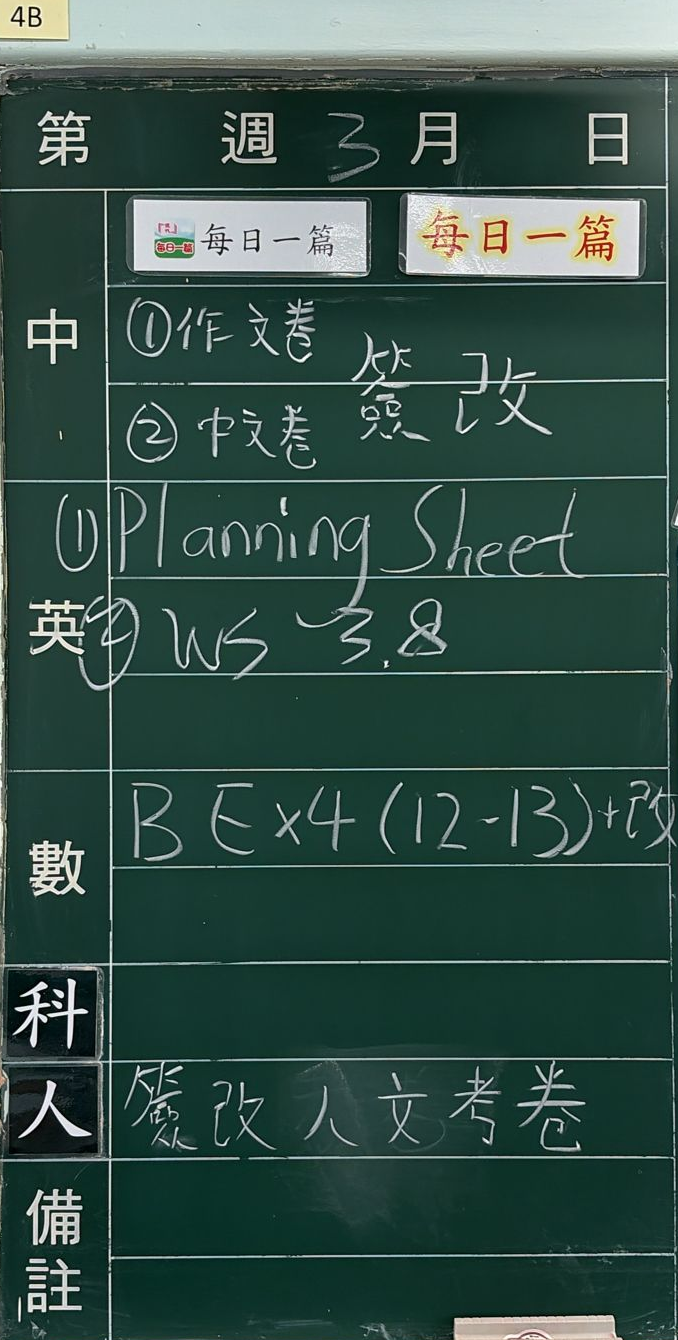 4B
第 週 3 月 日
中
每日一篇 每日一篇 每日一篇
①作文卷
簽改
②中文卷
英
①Planning Sheet
②WS 3.8
數
B Ex4 (12-13)+改
科
人 簽改人文考卷
備註